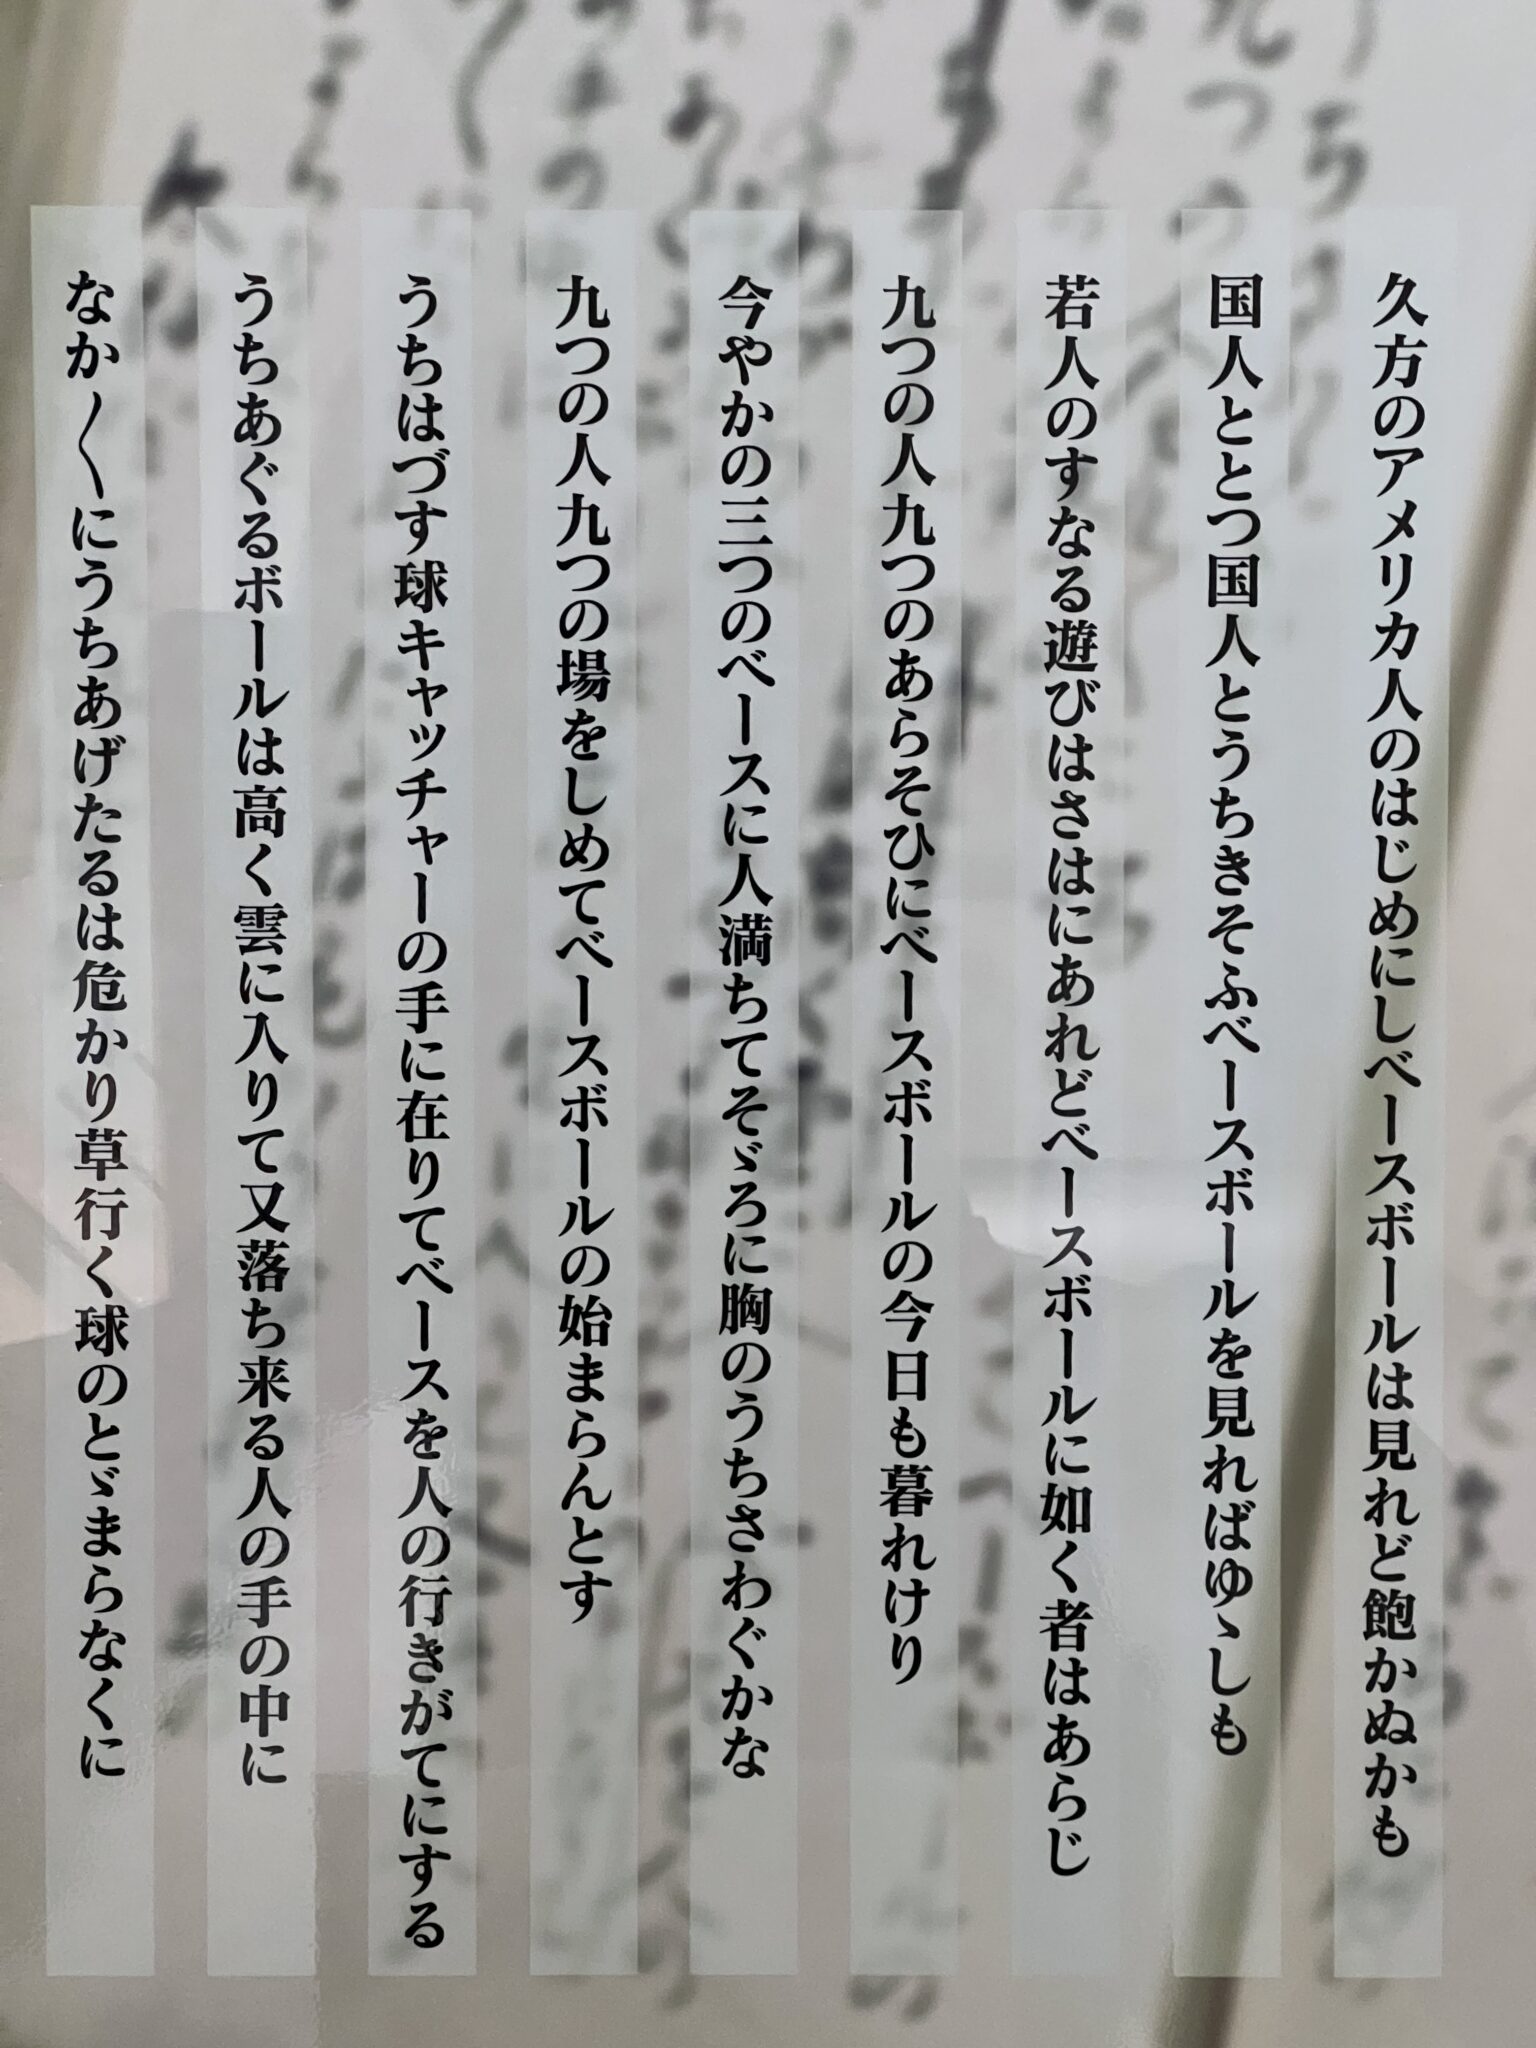 久方のアメリカ人のはじめにしベースボールは見れど飽かぬかも
国人ととつ国人とうちきそふベースボールを見ればゆゝしも
若人のすなる遊びはさはにあれどベースボールに如く者はあらじ
九つの人九つのあらそひにベースボールの今日も暮れけり
今やかの三つのベースに人満ちてそゞろに胸のうちさわぐかな
九つの人九つの場をしめてベースボールの始まらんとす
うちはづす球キャッチャーの手に在りてベースを人の行きがてにする
うちあぐるボールは高く雲に入りて又落ち来る人の手の中に
なか〳〵にうちあげたるは危かり草行く球のとゞまらなくに